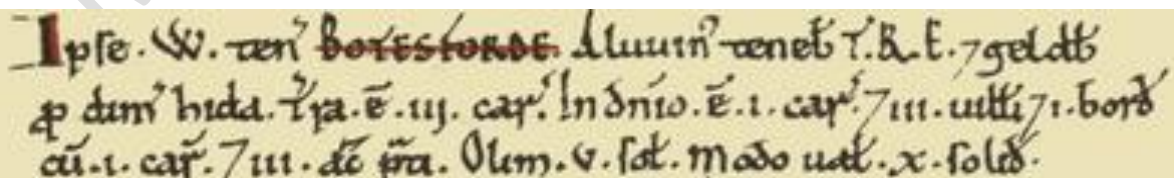 Ipse . W . ten̄ BOTESFORDE . Aluuin᷒ teneb̄ T . R . E . ⁊ geldb̄
ꝓ dim̄ hida . Tr̄a . ē . iij . car̄ . In dn̄io . ē . i . car̄ . ⁊ iii . uilli ⁊ i . bord̄
cū . i . car̄ . ⁊ iii . ac̄ p̄ra . Olim . v . sol̄ . Modo ual̄ . x . solid̄ .